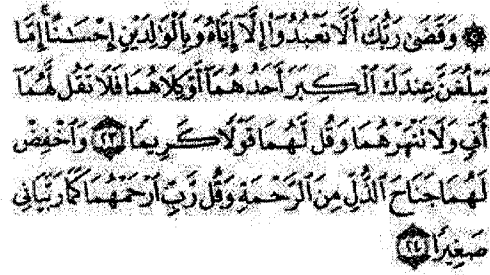 ۞ وَقَضَىٰ رَبُّكَ أَلَّا تَعْبُدُوٓا۟ إِلَّآ إِيَّاهُ وَبِٱلْوَٰلِدَيْنِ إِحْسَٰنًا ۚ إِمَّا
يَبْلُغَنَّ عِندَكَ ٱلْكِبَرَ أَحَدُهُمَآ أَوْ كِلَاهُمَا فَلَا تَقُل لَّهُمَآ
أُفٍّ وَلَا تَنْهَرْهُمَا وَقُل لَّهُمَا قَوْلًا كَرِيمًا ٢٣ وَٱخْفِضْ
لَهُمَا جَنَاحَ ٱلذُّلِّ مِنَ ٱلرَّحْمَةِ وَقُل رَّبِّ ٱرْحَمْهُمَا كَمَا رَبَّيَانِى
صَغِيرًا ٢٤